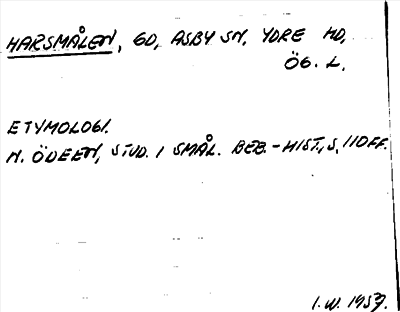 HARSMÅLEN, GD, ASBY SN, YDRE HD,
ÖG. L.
ETYMOLOGI.
N. ÖDEEN, STUD. I SMÅL. BEB.-HIST., S. 110FF.
I.W. 1957.